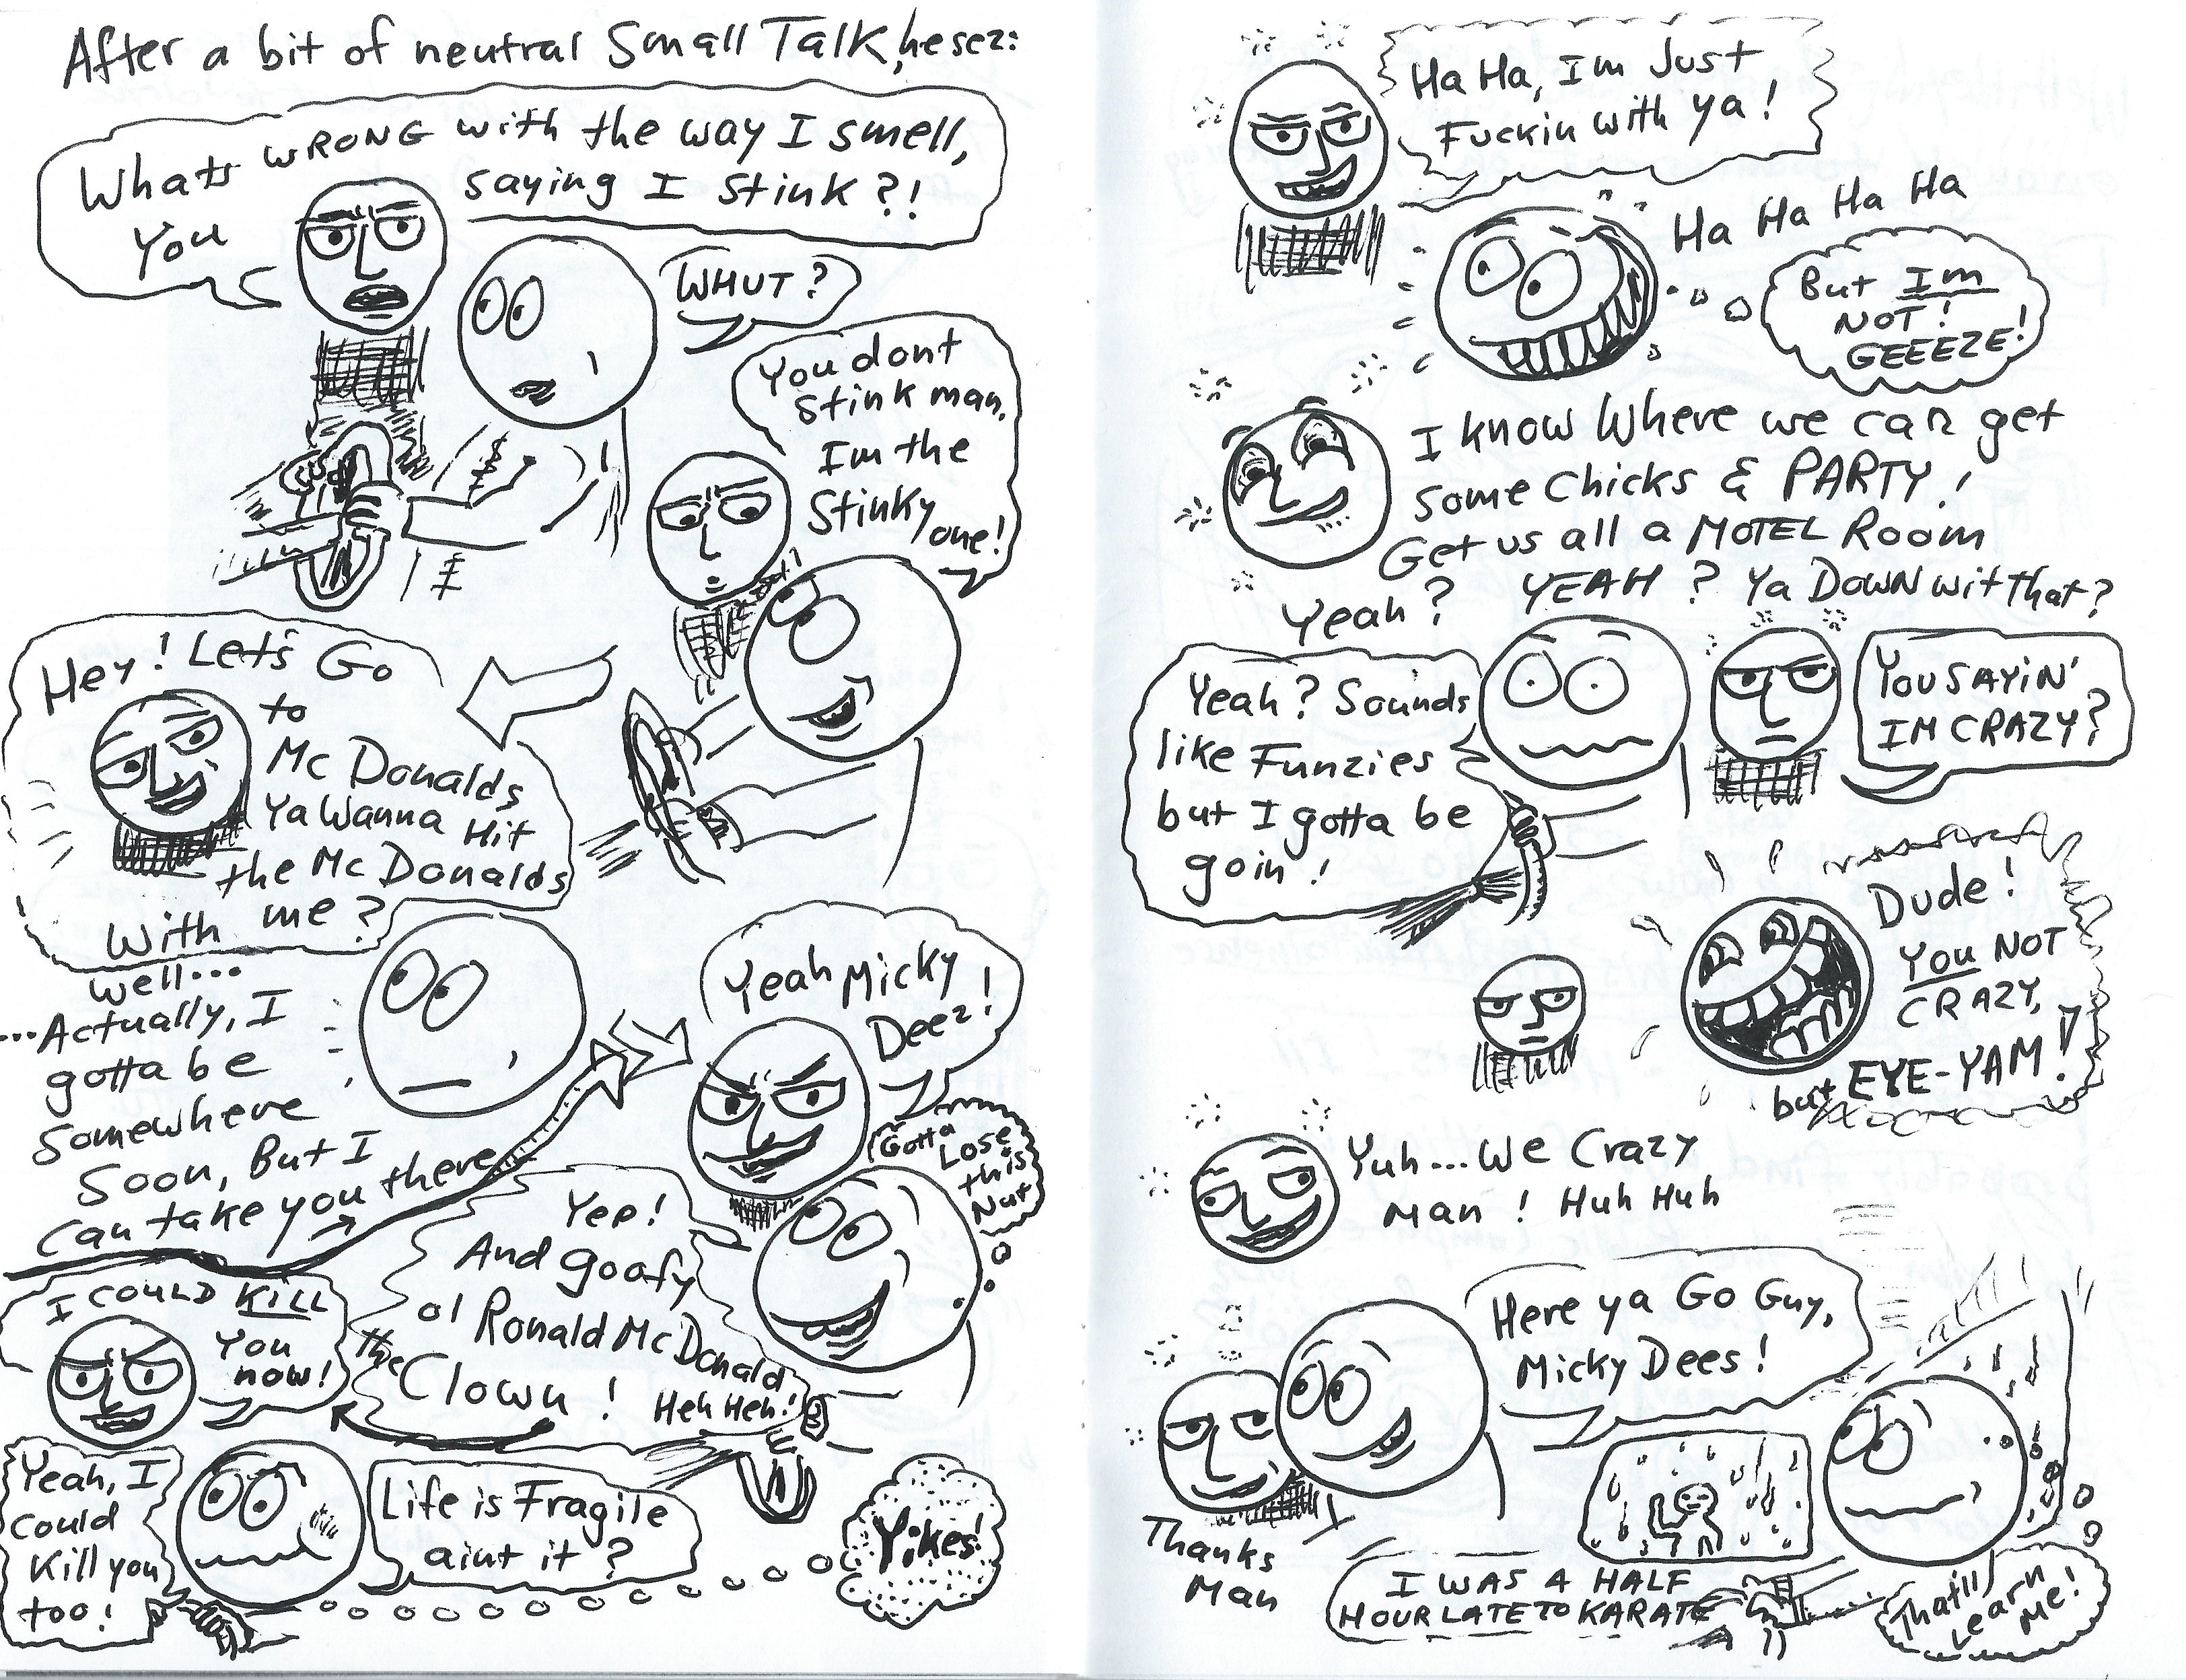 After a bit of neutral Small Talk, he sez:
Whats WRONG with the way I smell,
You saying I Stink?!
WHUT?
You dont
Stink man,
I'm the
Stinky
one!
Hey! Let's Go
to
McDonalds
Ya Wanna Hit
the McDonalds
With me?
Well...
...Actually, I
gotta be
somewhere
Soon, But I
can take you there
Yeah Micky
Deez!
Gotta
Lose
this
Nut
Yep!
And goofy
ol Ronald McDonald
the Clown!
Heh Heh!
I COULD KILL
You
now!
Yeah, I
could
Kill you
too!
Life is Fragile
aint it?
Yikes!
Ha Ha, Im Just
Fuckin with ya!
Ha Ha Ha Ha
But Im
NOT!
GEEEZE!
I know Where we can get
some Chicks & PARTY!
Get us all a MOTEL Room
Yeah? YEAH? Ya DOWN wit that?
Yeah? Sounds
like Funzies
but I gotta be
goin!
YOU SAYIN'
IM CRAZY?
Dude!
You NOT
CRAZY,
but EYE-YAM!
Yuh... We Crazy
Man! Huh Huh
Here ya Go Guy,
Micky Dees!
Thanks
Man
I WAS A HALF
HOUR LATE TO KARATE
That'll
Learn
Me!